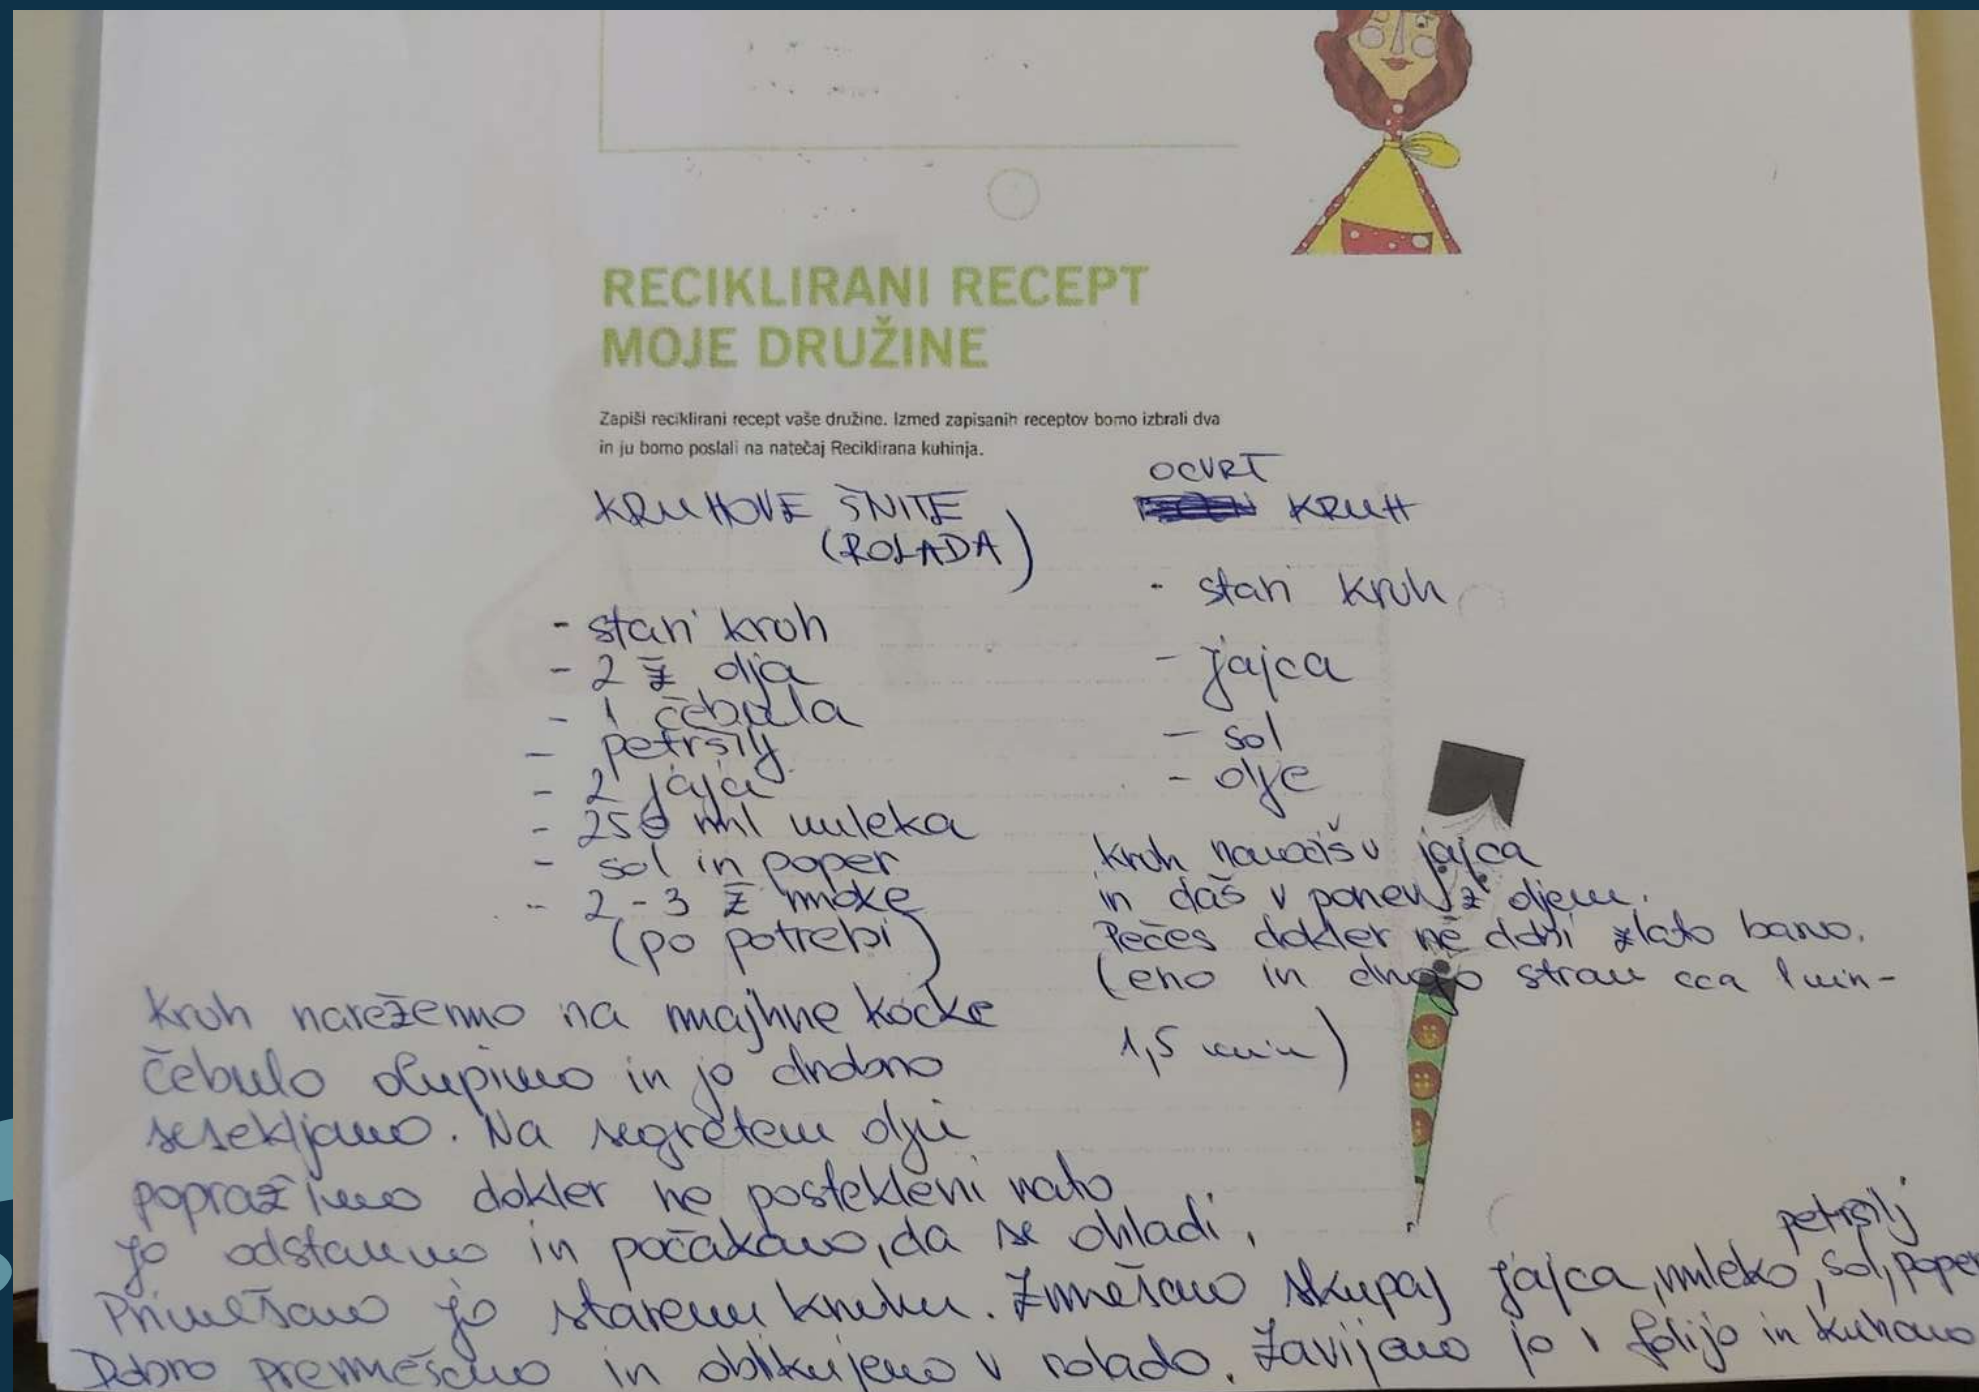 RECIKLIRANI RECEPT
MOJE DRUŽINE
Zapiši reciklirani recept vaše družine. Izmed zapisanih receptov bomo izbrali dva
in ju bomo poslali na natečaj Reciklirana kuhinja.
KRUHOVE ŠNITE
(ROLADA)
- stari kruh
- 2 ž olja
- 1 čebula
- petršilj
- 2 jajci
- 250 ml mleka
- sol in poper
- 2-3 ž moke
(po potrebi)
Kruh narežemo na majhne kocke
čebulo olupimo in jo drobno
sesekljamo. Na segretem olju
popražimo dokler ne postekleni nato
jo odstavimo in počakamo, da se ohladi.
Primešamo jo staremu kruhu. Zmešamo skupaj jajca, mleko, petršilj sol, poper
Dobro premešamo in oblikujemo v rolado. Zavijemo jo v folijo in kuhamo
OCVRT
KRUH
- stari kruh
- jajca
- sol
- olje
Kruh namočiš v jajca
in daš v ponev z oljem.
Pečeš dokler ne dobi zlato barvo.
(eno in drugo stran cca 1 min-
1,5 min)